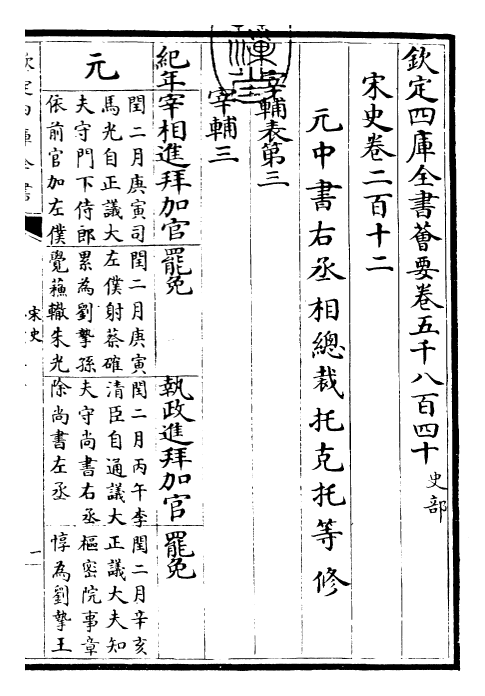 欽定四庫全書薈要卷五千八百四十 史部
宋史卷二百十二
元中書右丞相總裁托克托等修
宰輔表第三
宰輔三
紀年
宰相進拜加官
罷免
執政進拜加官
罷免
元
閏二月庚寅司
馬光自正議大
夫守門下侍郎
依前官加左僕
閏二月庚寅
左僕射蔡確
累為劉摯孫
覺蘓轍朱光
閏二月丙午李
清臣自通議大
夫守尚書右丞
除尚書左丞
閏二月辛亥
正議大夫知
樞密院事章
惇為劉摯王
欽定四庫全書
宋史